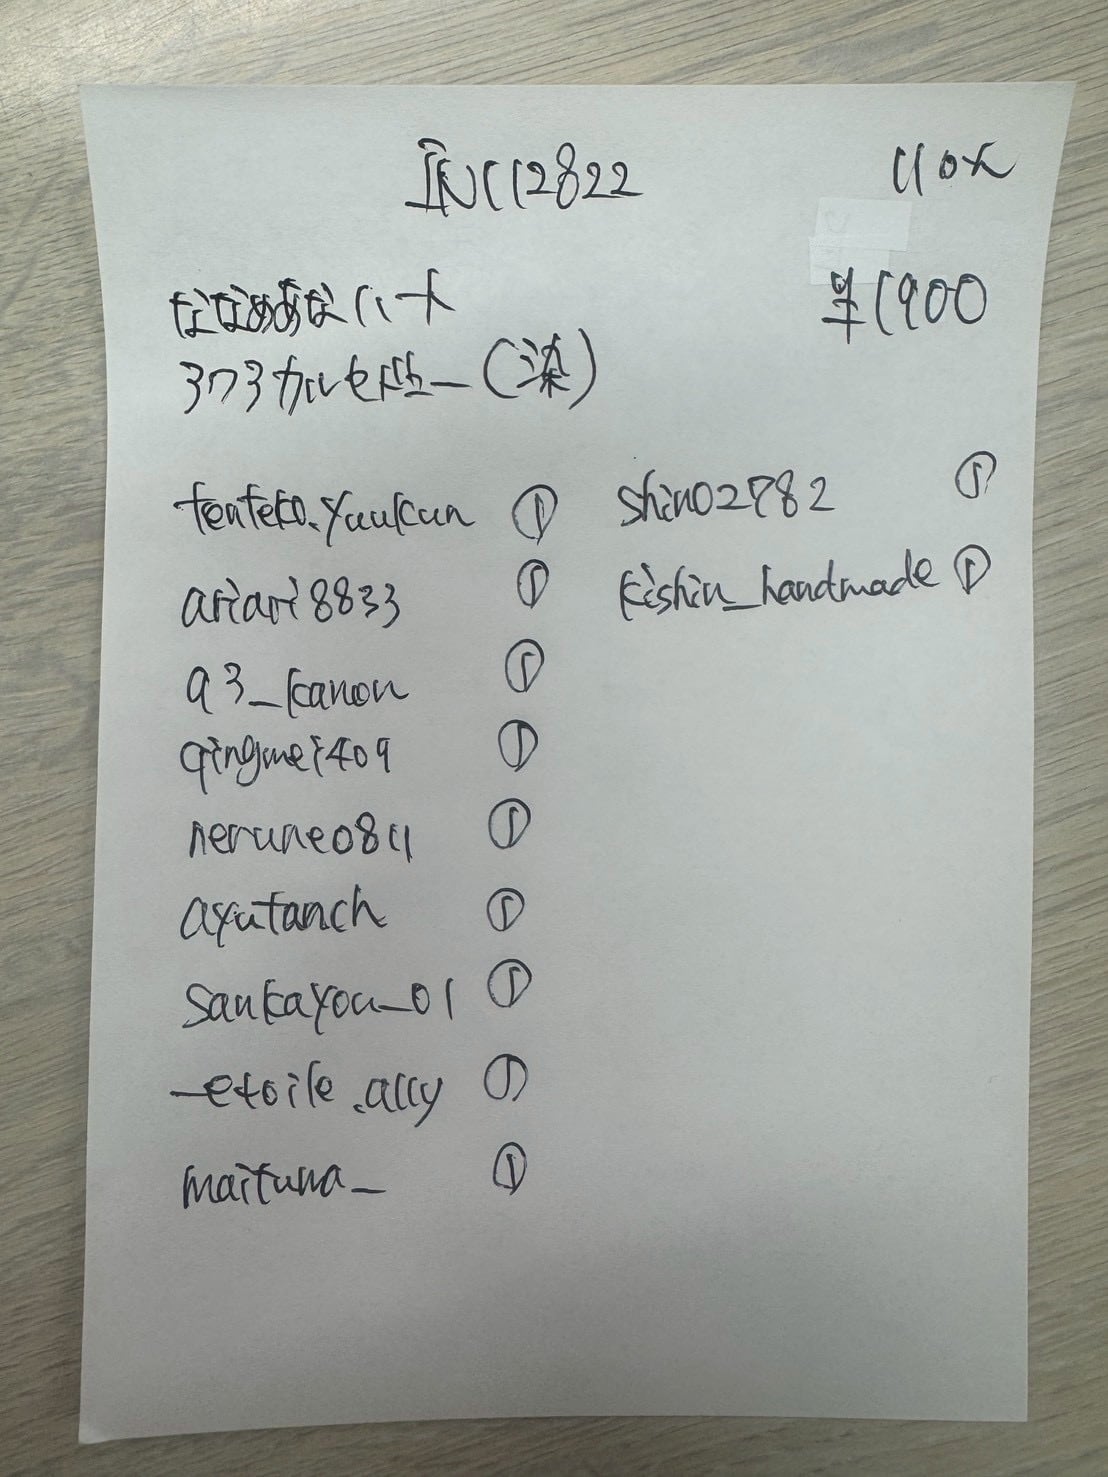 INC112822
110ス
ななめあなハート
¥1900
373カルセドニー(染)
tenteko.yuukun ①
ariari8833 ①
a3_kanon ①
qingmei409 ①
nerune0811 ①
ayutanch ①
sankayou_01 ①
_etoile.ally ①
maituna_ ①
shino2782 ①
kishin_handmade ①